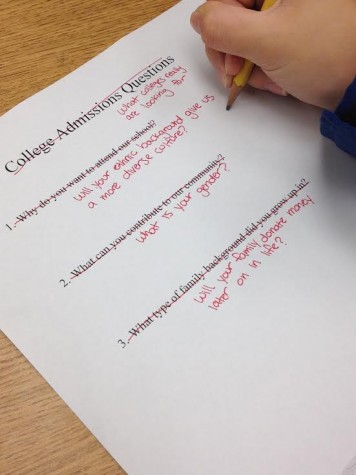 College Admissions Questions
What colleges really
are looking for
1. Why do you want to attend our school?
Will your ethnic background give us
a more diverse culture?
2. What can you contribute to our community?
What is your gender?
3. What type of family background did you grow up in?
Will your family donate money
later on in life?